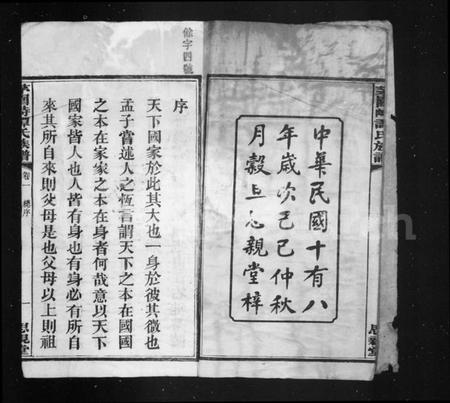 中華民國十有八
年歲次己巳仲秋
月穀旦思親堂梓
思親堂
餘字四號
序
天下國家於此其大也一身於彼其微也
孟子嘗述人之恆言謂天下之本在國國
之本在家家之本在身者何哉意以天下
國家皆人也人皆有身也有身必有所自
來其所自來則父母是也父母以上則祖
譚氏族譜
卷一
總序
一
思親堂